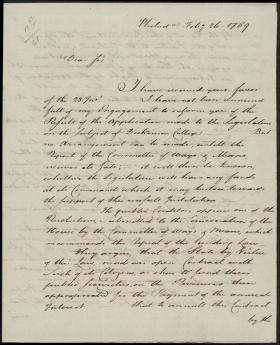 Philad.a Feby 26 1789
Dear Sir
I have received your favor
of the 23 Inst. I have not been unmind
full of my Engagement to inform you of the
Result of the Application made to the Legislature
on the subject of Dickinson College. But
no Arrangement can be made, untill the
Report of the Committee of Ways & Means,
meets its fate; it will then be known,
whether the Legislature will have any funds
at its Command which it may bestow towards
the support of this usefull Institution.
The public Creditors oppose one of the
Resolutions, submitted to the consideration of the
House by the Committee of Ways & Means, which
recommends the Repeal of the funding Law.
They argue, that the State by Virtue
of this Law, made an open Contract with
such of its Citizens, as chose to fund their
public securities, on the Revenues then
appropriated for the Payment of the annual
Interest that to annull this Contract
by the